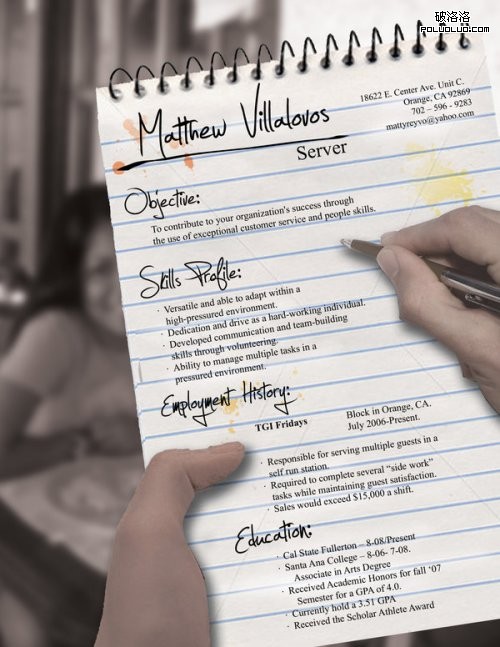 破洛洛
POLUOLUO.COM
Matthew Villalovos
18622 E. Center Ave. Unit C.
Orange, CA 92869
702 – 596 - 9283
mattyreyvo@yahoo.com
Server
Objective:
To contribute to your organization's success through
the use of exceptional customer service and people skills.
Skills Profile:
· Versatile and able to adapt within a
high-pressured environment.
· Dedication and drive as a hard-working individual.
· Developed communication and team-building
skills through volunteering.
· Ability to manage multiple tasks in a
pressured environment.
Employment History:
TGI Fridays
Block in Orange, CA.
July 2006-Present.
· Responsible for serving multiple guests in a
self run station.
· Required to complete several “side work”
tasks while maintaining guest satisfaction.
· Sales would exceed $15,000 a shift.
Education:
· Cal State Fullerton – 8-08/Present
· Santa Ana College – 8-06- 7-08.
Associate in Arts Degree
· Received Academic Honors for fall ‘07
Semester for a GPA of 4.0.
· Currently hold a 3.51 GPA
· Received the Scholar Athlete Award